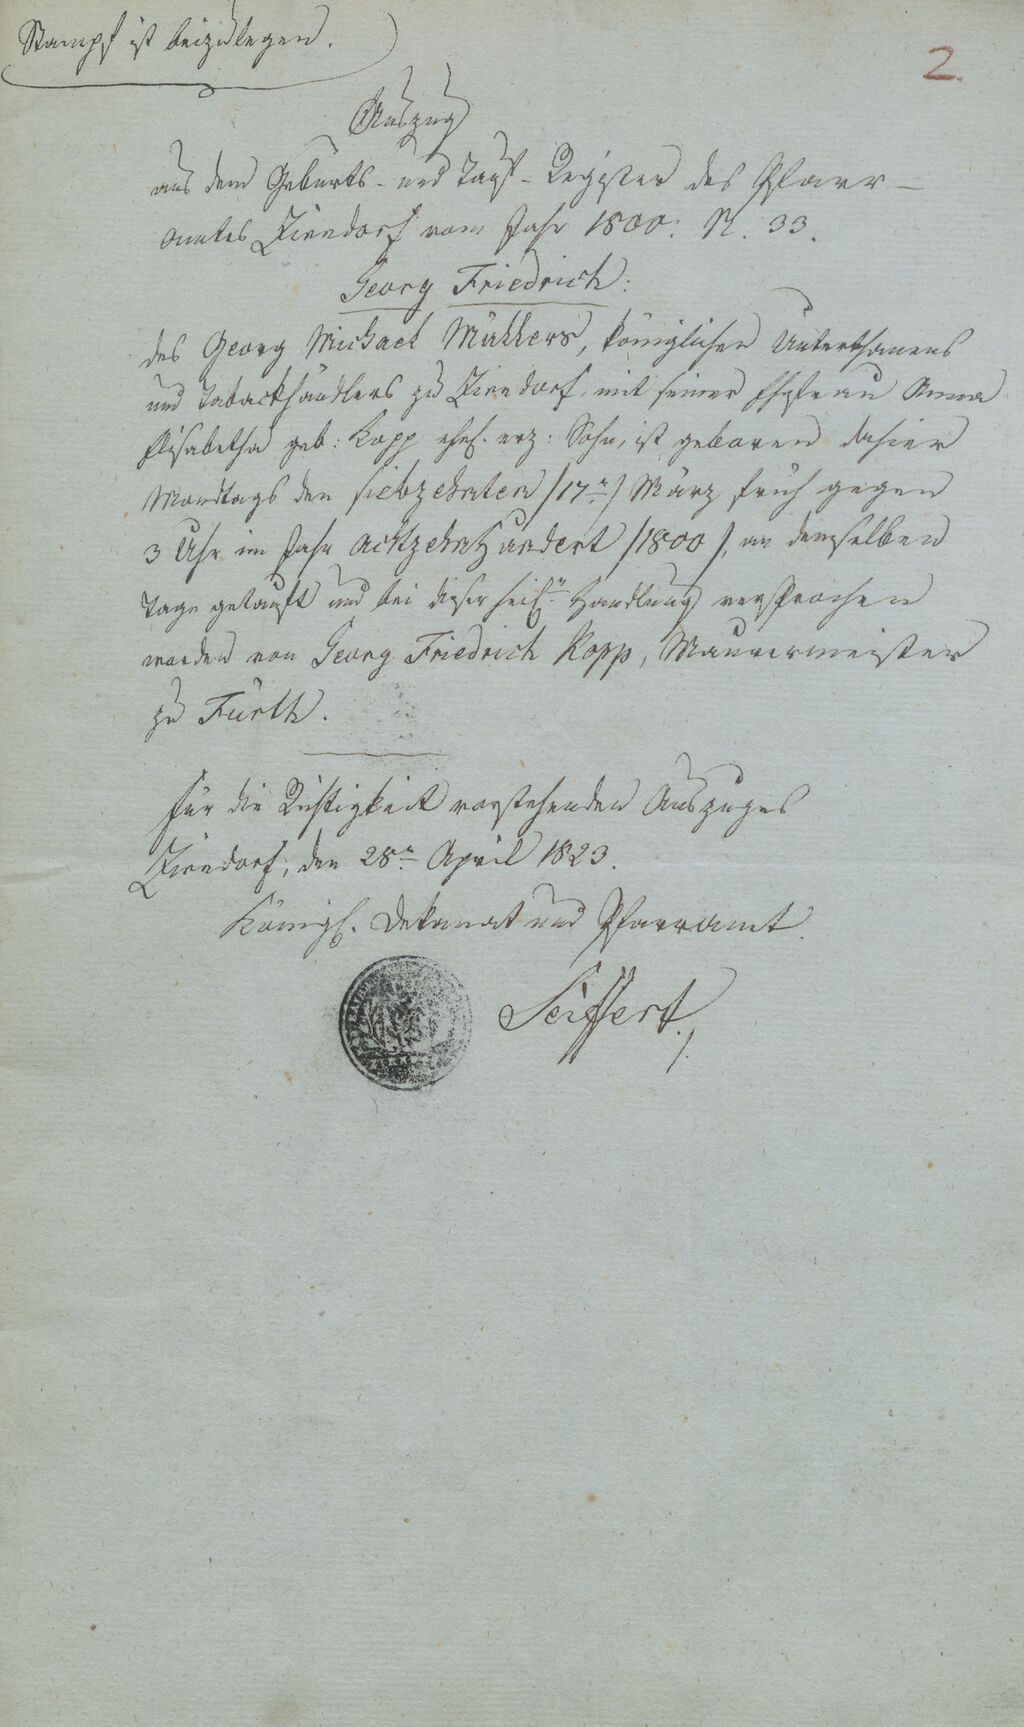 Stempf ist beizulegen.
2.
Auszug
aus dem Geburts- und Tauf-Register des Pfarr-
amtes Zirndorf vom Jahr 1800. N. 33.
Georg Friedrich:
des Georg Michael Müllers, königlichen Unterthanens
und Tabackhändlers zu Zirndorf, mit seiner Ehefrau Anna
Elisabetha geb: Kopp ehel. erz: Sohn, ist geboren dahier
Montags den siebzehnten /17n/ März früh gegen
3 Uhr im Jahr achtzehnhundert /1800/, an demselben
Tage getauft und bei dieser heiln. Handlung versprochen
worden von Georg Friedrich Kopp, Maurermeister
zu Fürth.
Für die Richtigkeit vorstehenden Auszuges
Zirndorf, den 28n April 1823.
Königl. Dekanat und Pfarramt.
Seiffert.